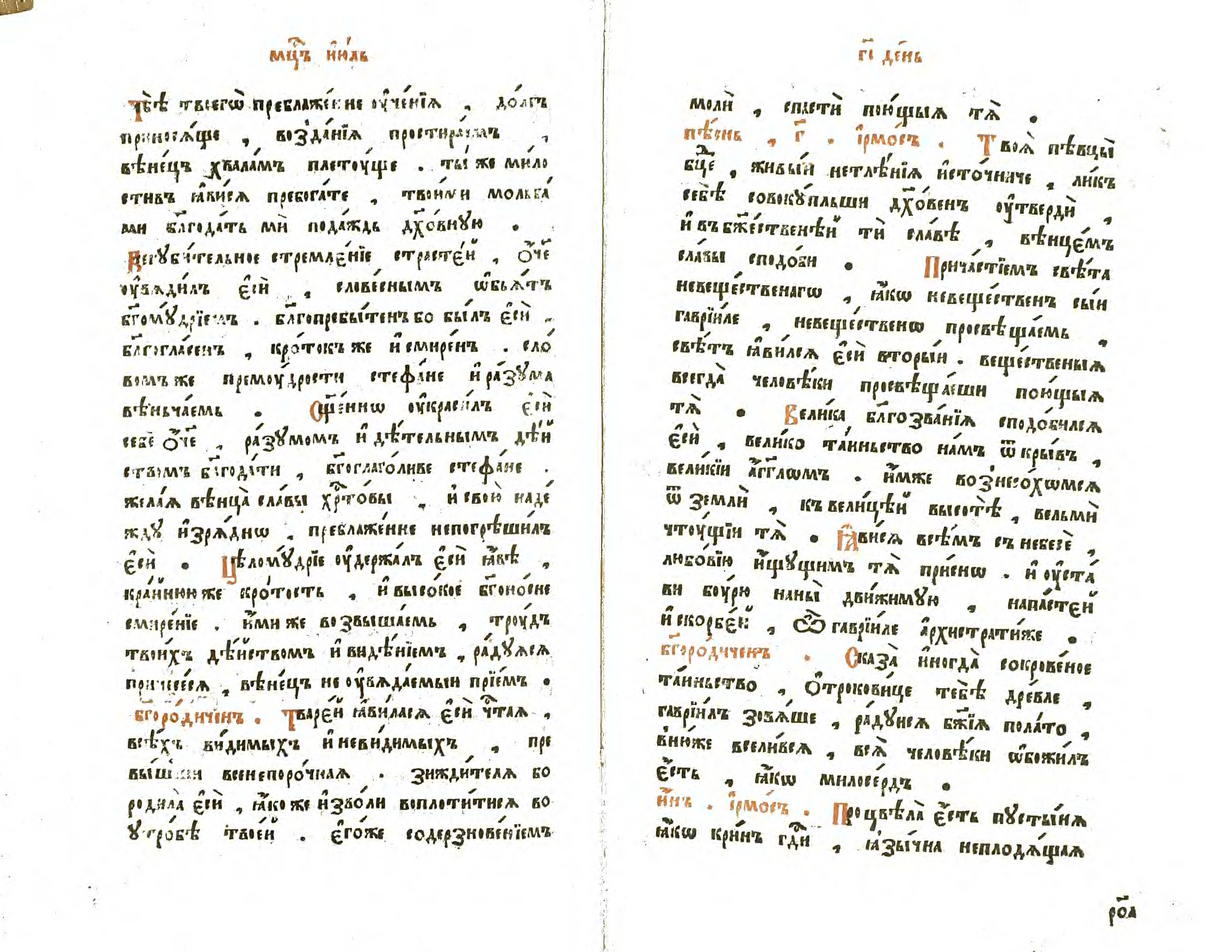 мцⷭ҇ъ і҆ю́ль
Тѣбѣ̀ твоегѡ̀ преблаже́нне оу҆че́нїѧ , до́лгъ
приносѧ́ще , возда́нїѧ простира́емъ ,
вѣне́цъ хвала́мъ плетоу́ще . ты́ же ми́ло
стивъ ꙗ҆ви́сѧ пребога́те , твои́ми мольба́
ми блгⷣода́ть мѝ пода́ждь дх҃о́вную .
Всегуби́тельное стремле́нїе страсте́й , ѻ҆́ч҃е
оу҆вѧди́лъ є҆сѝ , слове́снымъ ѡ҆б̾ѧ́тъ
бг҃ому́дрїемъ . бл҃гопребы́тенъ бо бы́лъ є҆сѝ ,
бл҃гогла́сенъ , кро́токъ же и҆ смире́нъ . сло́
вомъ же премоу́дрости стефа́не и҆ ра́зума
вѣньча́емь . Сщ҃е́ннѡ оу҆краси́лъ є҆сѝ
себѐ ѻ҆́ч҃е , ра́зумомъ и҆ дѣ́тельнымъ дѣ́й
ствомъ бл҃года́ти , бг҃оглаго́ливе стефа́не .
жела́ѧ вѣнца̀ сла́вы хрⷭ҇то́вы , и҆ свою̀ наде́
жду и҆зрѧ́днѡ , преблаже́нне непогрѣши́лъ
є҆сѝ . Цѣлому́дрїе оу҆держа́лъ є҆сѝ ꙗ҆́вѣ ,
кра́йнюю же кро́тость , и҆ высо́кое бг҃оно́сне
смире́нїе . и҆́ми же возвыша́емь , троу́дъ
твои́хъ дѣ́йствомъ и҆ ви́дѣнїемъ , ра́дуѧсѧ
принесе́сѧ , вѣне́цъ не оу҆вѧда́емыи прїе́мъ .
бг҃оро́диченъ . Тваре́й ꙗ҆ви́ласѧ є҆сѝ чⷭ҇таѧ ,
всѣ́хъ ви́димыхъ и҆ неви́димыхъ , пре
вы́шши всенепоро́чнаѧ . зижди́телѧ бо
родила̀ є҆сѝ , ꙗ҆́коже и҆зво́ли воплоти́тисѧ во
у҆тро́бѣ твое́й . є҆го́же содерзнове́нїемъ
г҃і де́нь
молѝ , спастѝ пою́щыѧ тѧ̀ .
пѣ́снь , г҃ . і҆рмо́съ . Твоѧ̀ пѣвцы̀
бц҃де , живы́и нетлѣ́нїѧ и҆сто́чниче , ли́къ
себѣ̀ совоку́пльши дх҃о́венъ оу҆твердѝ ,
и҆ въ бж҃е́ственѣй тѝ сла́вѣ , вѣнце́мъ
сла́вы сподо́би . Прича́стїемъ свѣ́та
невеще́ственагѡ , ꙗ҆́кѡ невеще́ственъ сы́и
гаврїи́ле , невеще́ственѡ просвѣща́емь ,
свѣ́тъ ꙗ҆ви́лсѧ є҆сѝ вторы́и . веще́ственыѧ
всегда̀ человѣ́ки просвѣща́еши пою́щыѧ
тѧ̀ . Вели́ка бл҃гозва́нїѧ сподо́билсѧ
є҆сѝ , вели́ко та́иньство на́мъ ѿкры́въ ,
вели́кїи а҆́гг҃лѡмъ . и҆́мже вознесо́хомсѧ
ѿ землѝ , къ вели́цѣй высотѣ̀ , вельмѝ
чтоу́щїи тѧ̀ . Ꙗ҆ви́сѧ всѣ́мъ съ небесѐ ,
любо́вїю и҆́щущимъ тѧ̀ при́снѡ . и҆ оу҆ста́
ви боу́рю на ны̀ дви́жимую , напа́стей
и҆ ско́рбей , ѽ гаврїи́ле а҆рхистрати́же .
бг҃оро́диченъ . Сказа̀ и҆ногда̀ сокрове́ное
та́иньство , ѻ҆трокови́це тебѣ̀ дре́вле ,
гаврїи́лъ зовѧ́ше , ра́дуисѧ бж҃їѧ пола́то ,
в̾ню́же всели́всѧ , всѧ̀ человѣ́ки ѡ҆божи́лъ
є҆́сть , ꙗ҆́кѡ милосе́рдъ .
и҆́нъ . і҆рмо́съ . Процвѣла̀ є҆́сть пусты́нѧ
ꙗ҆́кѡ кри́нъ гдⷭ҇и , ꙗ҆зы́чна неплодѧ́щаѧ
ро҃а